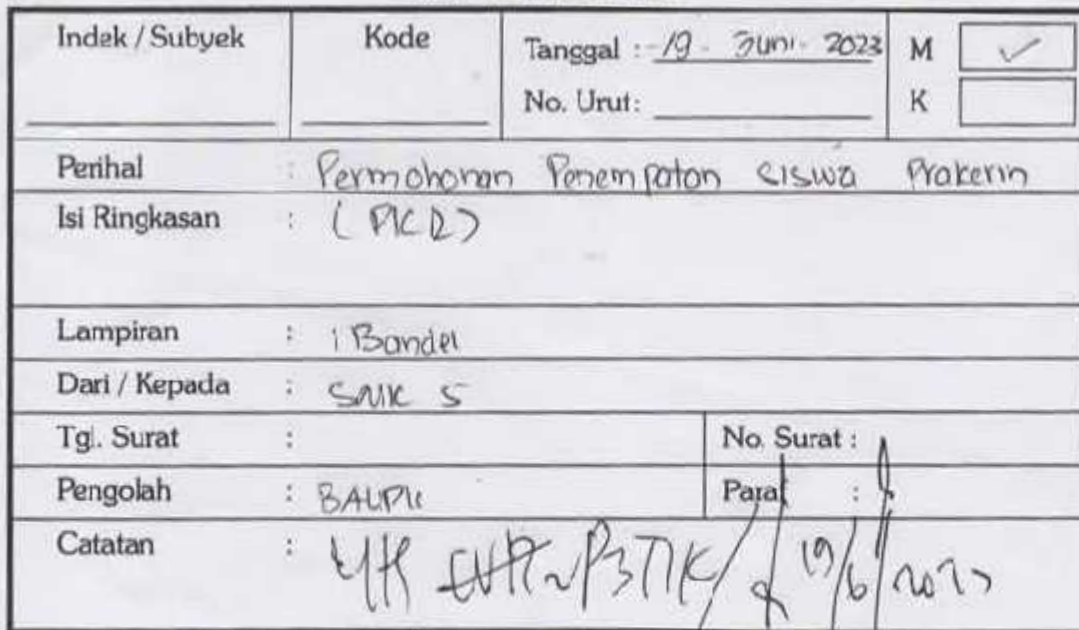 Indek / Subyek Kode Tanggal : 19 - Juni - 2023 M ✓
No. Urut: K
Perihal : Permohonan Penempatan siswa Prakerin
Isi Ringkasan : (PKL)
Lampiran : 1 Bandel
Dari / Kepada : SMK 5
Tgl. Surat : No. Surat :
Pengolah : BAUPK
Paraf :
Catatan : 19/6/2023